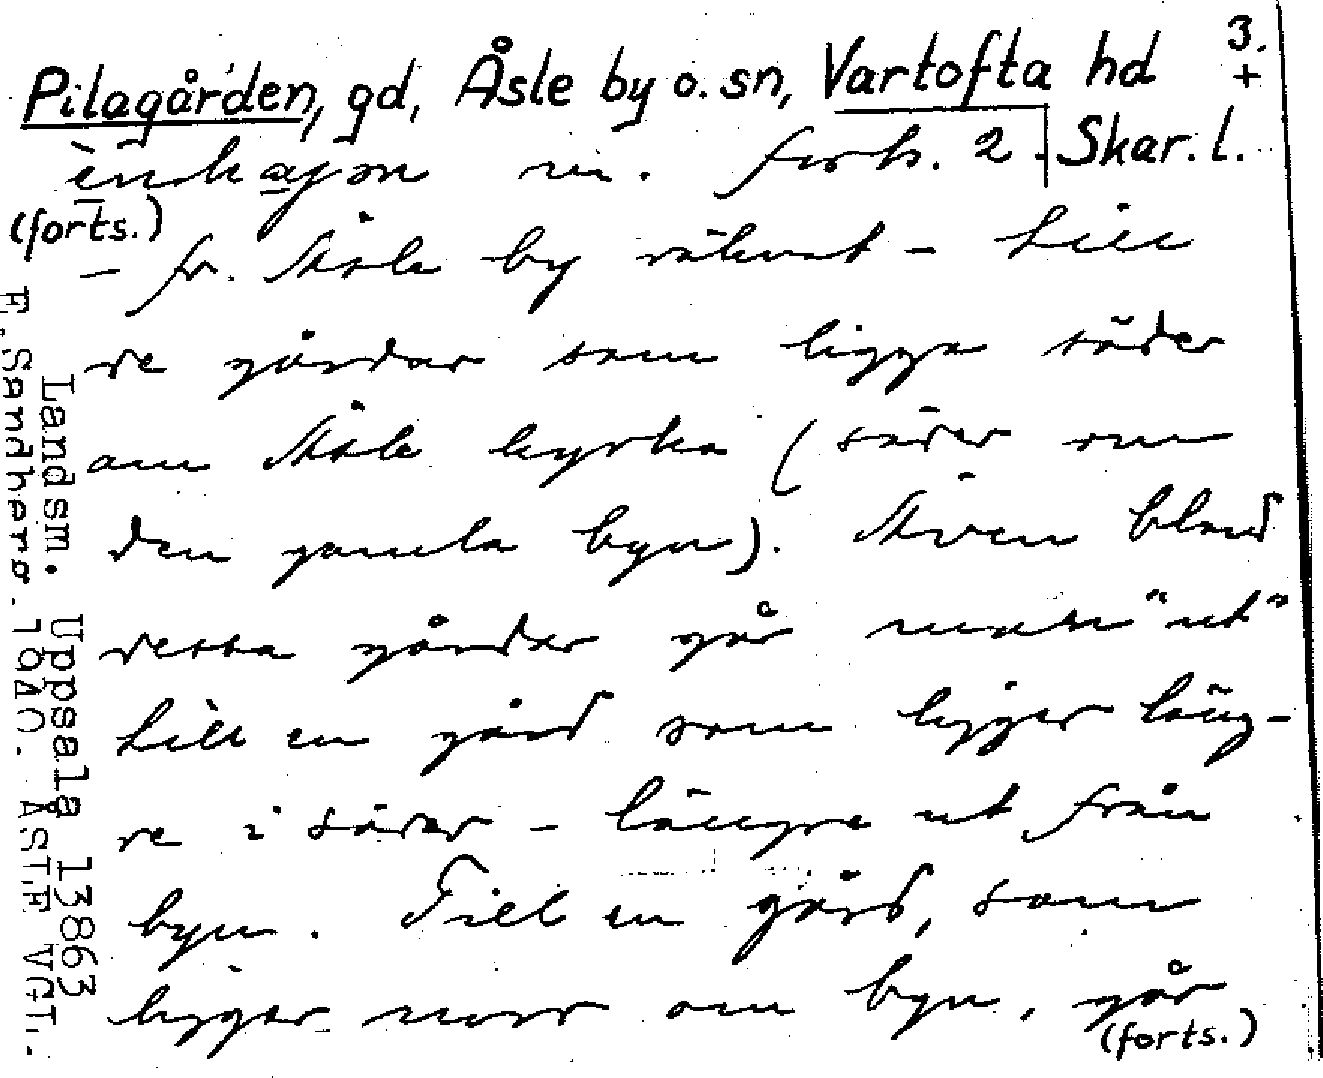 3.
+
Pilagården, gd, Åsle by o. sn, Vartofta hd
Skar. l.
m. forts. 2
(forts.)
– fr. Åsle by räknat – till
de gårdar som ligga söder
om Åsle kyrka (söder om
den gamla byn). Även bland
dessa gårdar går man "ut"
till en gård som ligger läng-
re i söder – längre ut från
byn. Till en gård, som
ligger norr om byn, går
(forts.)
Landsm. Uppsala 13863
E. Sandberg. 1940. ÅSLE VGT.